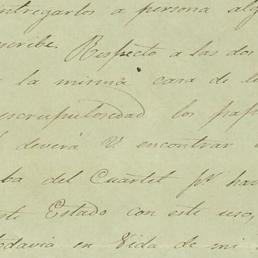 entregarlos a persona alg
scribe. Respecto a las dos
la misma casa de l
escrupulosidad los pap
deverá V. encontrar
ba del Cuartel pr. hav
ste Estado con este uso,
todavia en Vida de mi